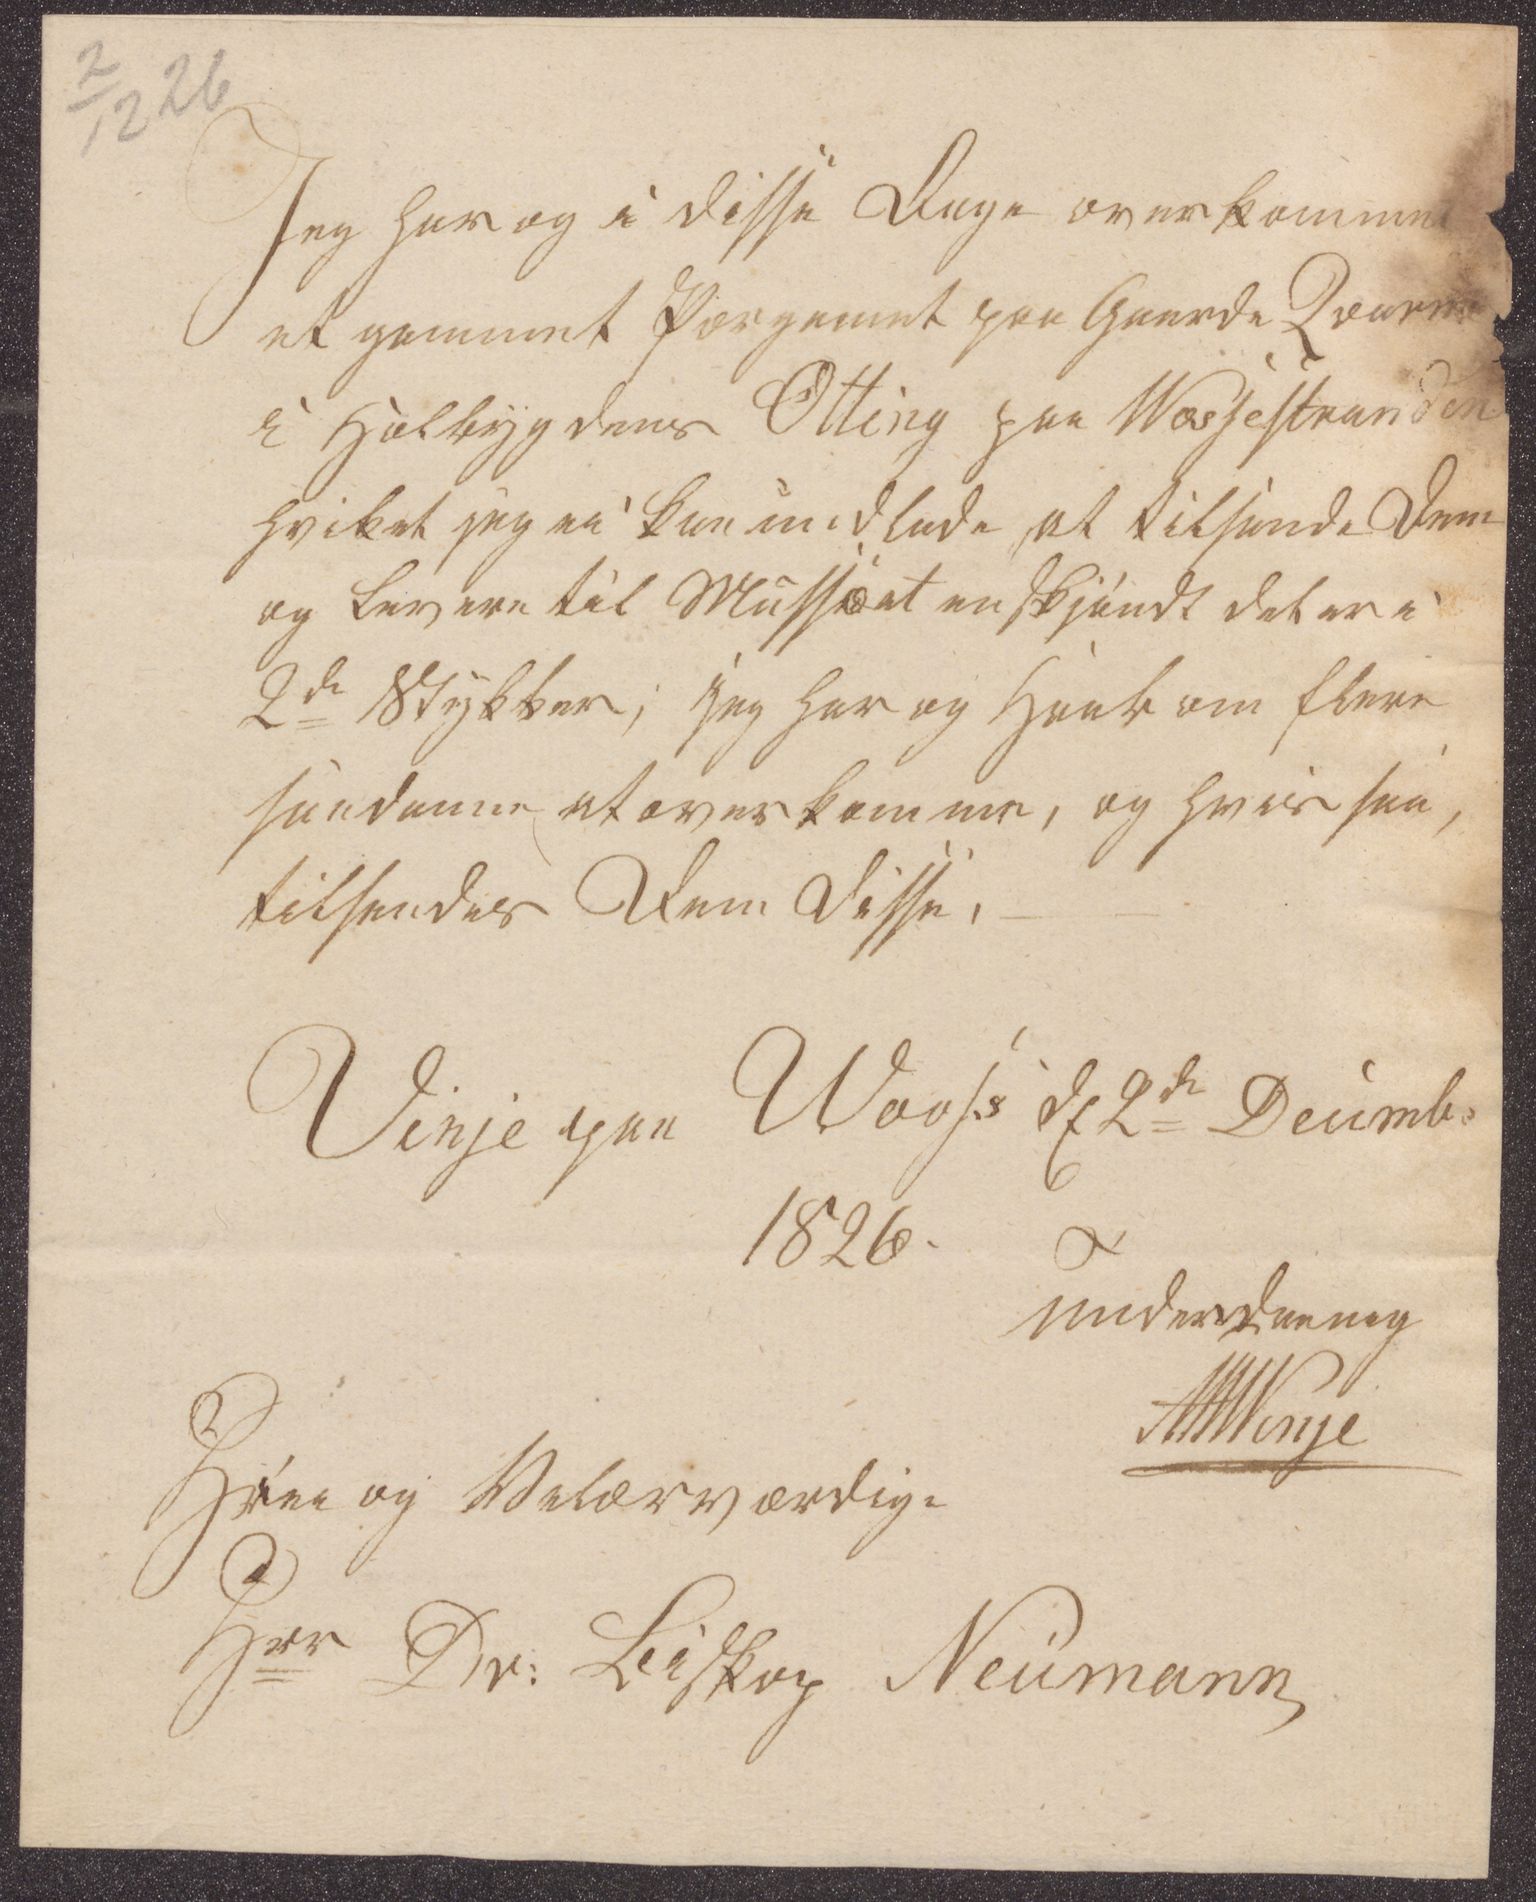 2/12 26
Jeg har og i disse Dage overkommet
et gammelt Pergament paa Gaarde Qvarme
i Holbygdens Otting paa Wossestranden
hvilket jeg ei kan undlade at tilsende Dem
og levere til Mussæet enskjøndt det er i
2de Stykker; jeg har og Haab om flere
saadanne at overkomme, og hvis saa,
tilsendes Dem disse.
Vinje paa Woss d 2de Decemb:
1826.
underdanig
Winje
Høie og Velærværdige
Herr Dr: Biskop Neumann